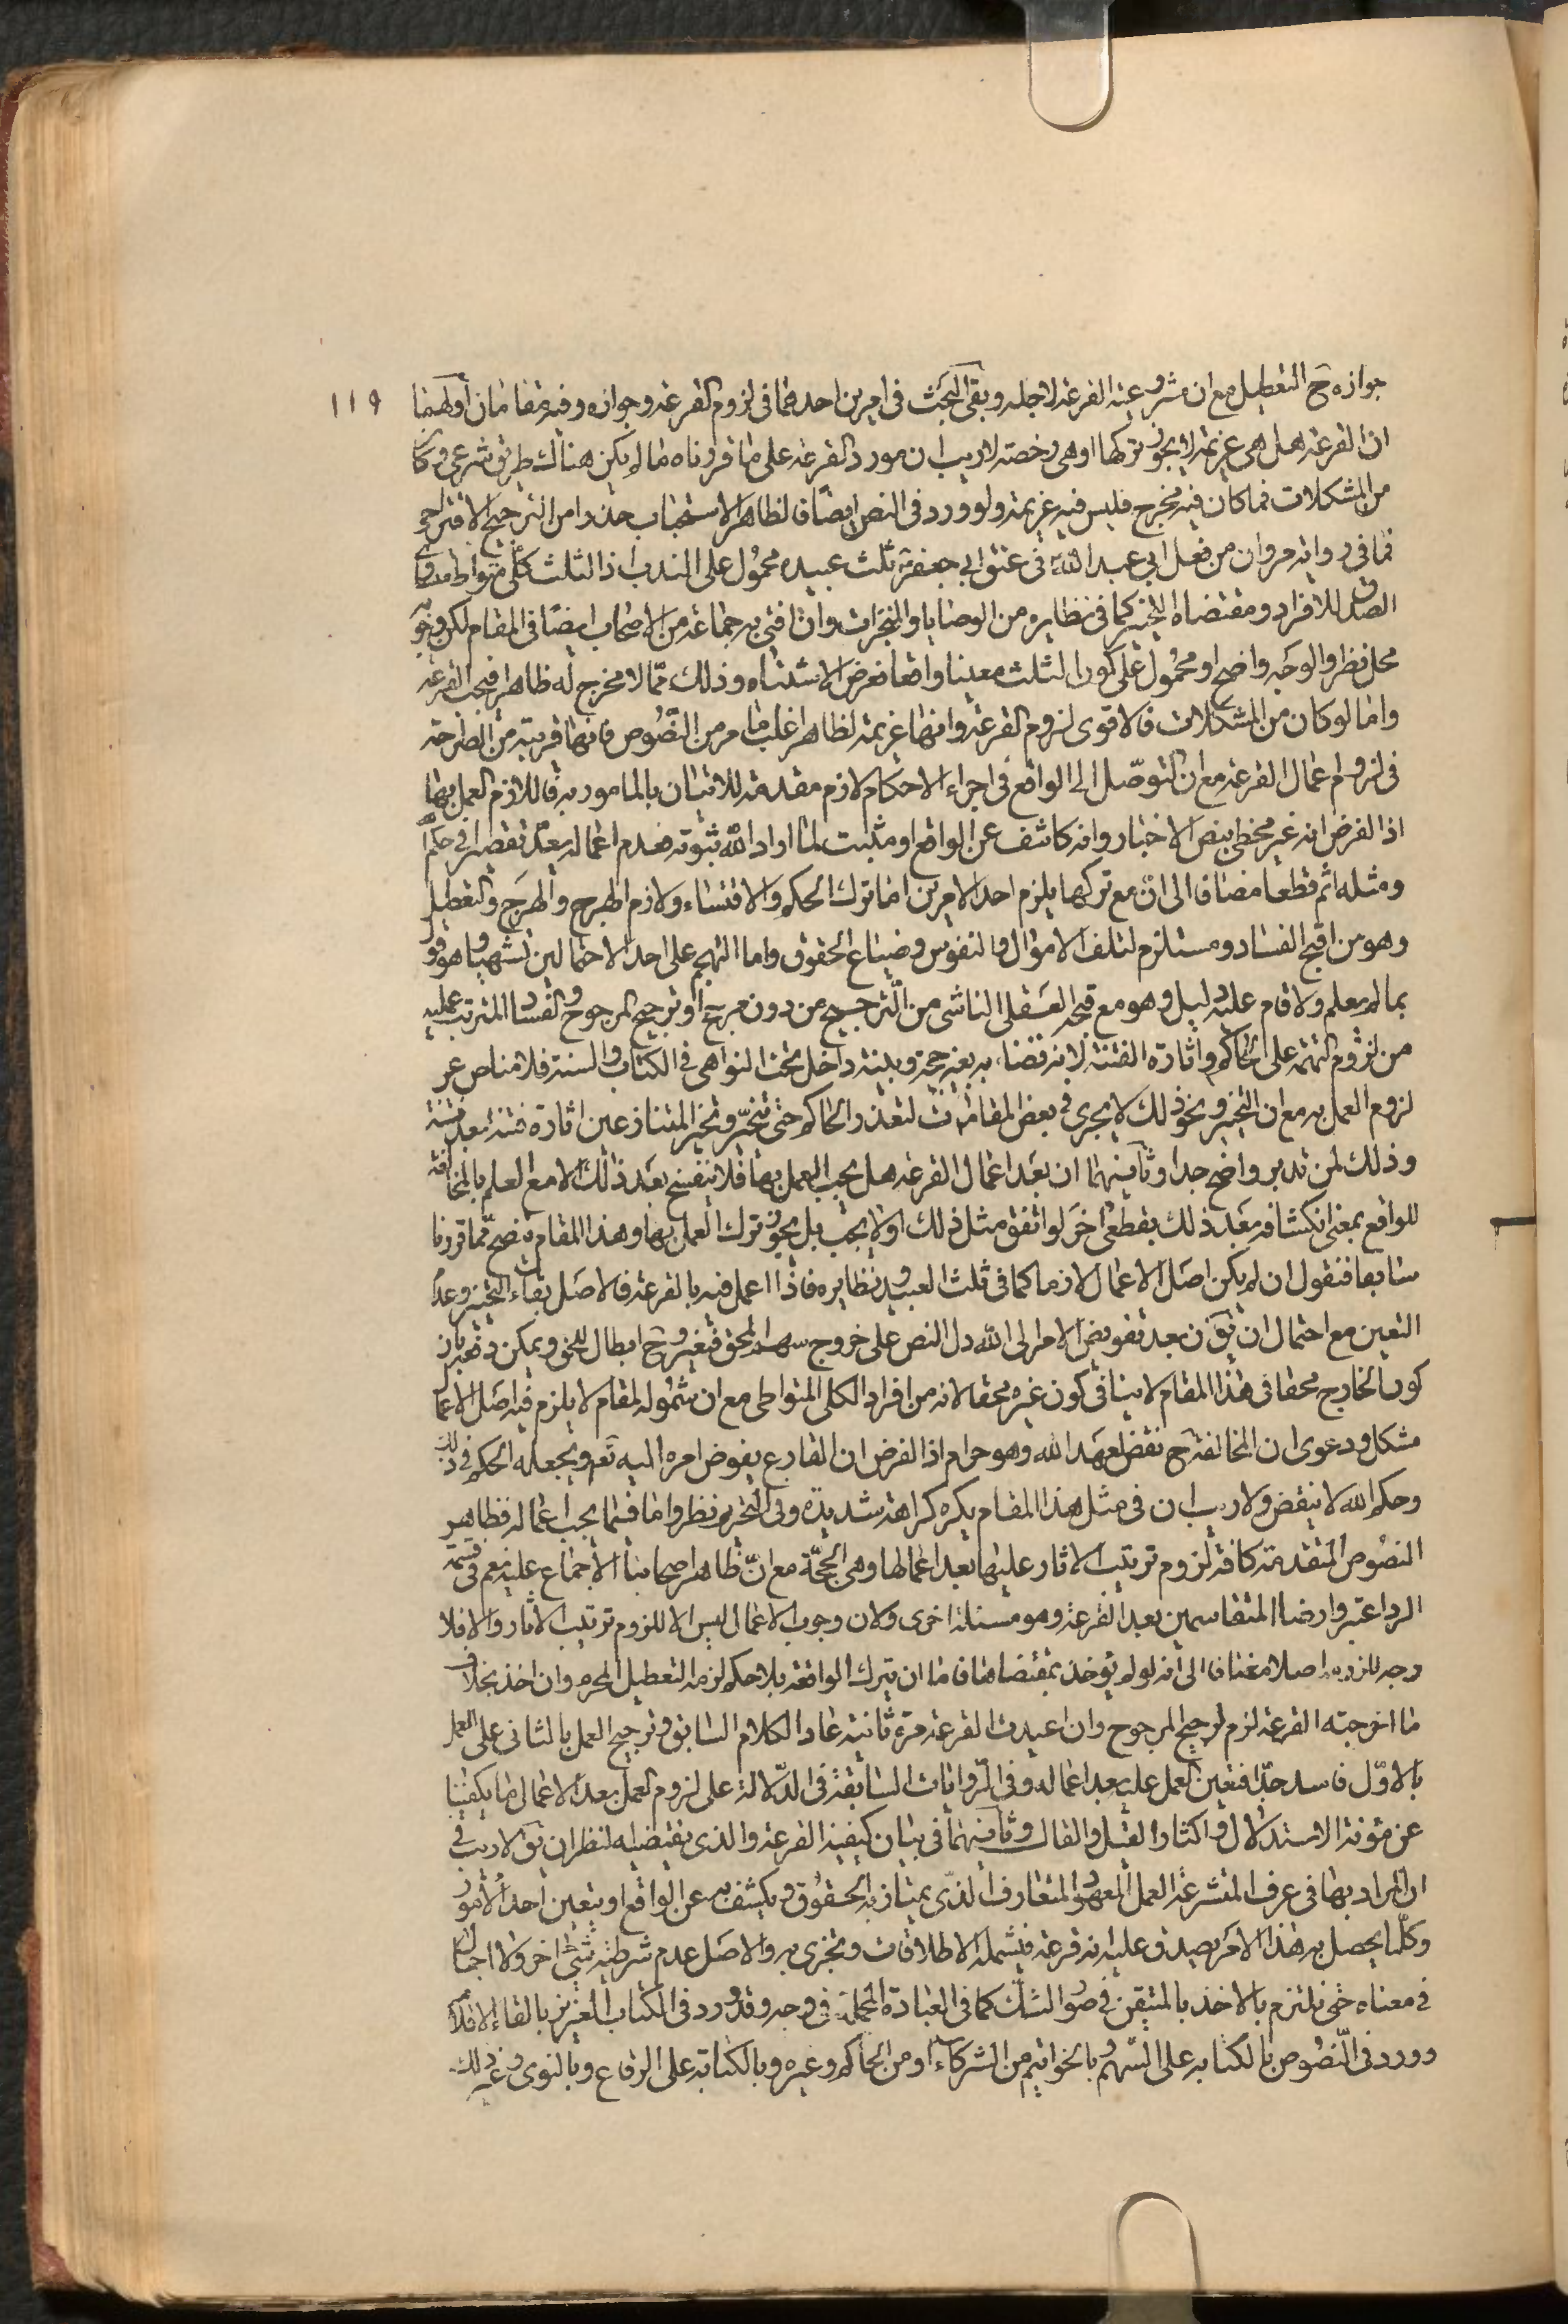 جوازه ح التعطيل مع ان مشروعية القرعة لاجله وبقى البحث فى امرين احدهما فى لزوم القرعة وجوازه وفيه مقامان اولهما ١١٩
ان القرعة هل هى عزيمة لا يجوز تركها او هى رخصة لا ريب ان مورد القرعة على ما قررناه ما لم يكن هناك طريق شرعى وكان
من المشكلات فما كان فيه مخرج فليس فيه عزيمة ولو ورد فى النص ايضا فالظاهر الاستحباب حذرا من الترجيح الاقتراحى
فما فى رواية مروان من فعل ابى عبد الله فى عتق ابى جعفر ثلث عبيده محمول على الندب اذ الثلث كلى متواطى متساوى
الصدق للافراد ومقتضاه التخيير كما فى نظايره من الوصايا والمنجزات وان افتى به جماعة من الاصحاب ايضا فى المقام لكن وجوبه
محل نظر والوجه واضح او محمول على كون الثلث معينا واقعا فعرض الاشتباه وذلك مما لا مخرج له ظاهرا فيجب القرعة
واما لو كان من المشكلات فالاقوى لزوم القرعة وانها عزيمة لظاهر اغلب ما مر من النصوص فانها قريبة من الصراحة
فى لزوم اعمال القرعة مع ان التوصل الى الواقع فى اجراء الاحكام لازم مقدمة للاتيان بالمامور به فاللازم العمل بها
اذ الفرض انه غير مخطى بنص الاخبار وانه كاشف عن الواقع او مثبت لما اراد الله ثبوته فعدم اعماله يعد تقصيرا فى حكم الله
ومثله اثم قطعا مضافا الى ان مع تركها يلزم احد الامرين اما ترك الحكم والافتاء ولازم الهرج والمرج والتعطيل
وهو من اقبح الفساد ومستلزم لتلف الاموال والنفوس وضياع الحقوق واما التهجم على احد الاحتمالين تشهيا وهو قول
بما لم يعلم ولا قام عليه دليل وهو مع قبحه العقلى الناشى من الترجيح من دون مرجح او ترجيح المرجوح والفساد المترتب عليه
من لزوم التهمة على الحاكم واثارة الفتنة لانه قضاء به بغير حجة وبينة داخل تحت النواهى فى الكتاب والسنة فلا مناص عن
لزوم العمل به مع ان التخيير ونحو ذلك لا يجرى فى بعض المقامات لتعذر الحاكم حتى يتخير وتخير المتنازعين اثارة فتنة بعد فتنة
وذلك لمن تدبر واضح جدا وثانيهما ان بعد اعمال القرعة هل يجب العمل بها فلا ينفسخ بعد ذلك الا مع العلم بالمخالفة
للواقع بمعنى انكشافه بعد ذلك بقطعى اخر لو اتفق مثل ذلك او لا يجب بل يجوز ترك العمل بها وهذا المقام يتضح مما قررنا
سابقا فنقول ان لم يكن اصل الاعمال لازما كما فى ثلث العبيد ونظايره فاذا اعمل فيه بالقرعة فالاصل بقاء التخيير وعدم
التعين مع احتمال ان يق ن بعد تفويض الامر الى الله دل النص على خروج سهم المحق فتغييره ح ابطال للحق ويمكن دفعه بان
كون الخارج محقا فى هذا المقام لا ينافى كون غيره محقا لانه من افراد الكلى المتواطى مع ان شموله لمقام لا يلزم فيه اصل الاعمال
مشكل ودعوى ان المخالفة ح نقض لعهد الله وهو حرام اذ الفرض ان القارع يفوض امره اليه تعم ويجعله الحكم فى ذلك
وحكم الله لا ينقض ولا ريب ان فى مثل هذا المقام يكره كراهة شديدة وفى التحريم نظر واما فيما يجب اعماله فظاهر
النصوص المتقدمة كافة لزوم ترتيب الاثار عليها بعد اعمالها وهى الحجة مع ان ظاهر اصحابنا الاجماع عليه نعم فى قسمة
الرد اعتبروا رضا المتقاسمين بعد القرعة وهو مسئلة اخرى ولان وجوب الاعمال ليس الا للزوم ترتيب الاثار والا فلا
وجه للزومه اصلا مضافا الى انه لو لم يؤخذ بمقتضاها فاما ان يترك الواقعة بلا حكم لزم التعطيل المحرم وان اخذ بخلاف
ما اخرجته القرعة لزم ترجيح المرجوح وان اعيدت القرعة مرة ثانية عاد الكلام السابق وترجيح العمل بالثانى على العمل
بالاول فاسد جدا فتعين العمل عليه بعد اعماله وفى الروايات السابقة فى الدلالة على لزوم العمل بعد الاعمال ما يكفينا
عن مؤنة الاستدلال واكثار القيل والقال وثانيهما فى بيان كيفية القرعة والذى يقتضيه النظر ان يق لا ريب فى
ان المراد بها فى عرف المتشرعة العمل المعهود المتعارف الذى يمتاز به الحقوق ويكشف به عن الواقع او يتعين احد الامور
وكلما يحصل به هذا الامر يصدق عليه انه قرعة فيشمله الاطلاقات وتجزى به والاصل عدم شرطية شئ اخر ولا اجمال
فى معناه حتى نلتزم بالاخذ بالمتيقن فى صور الشك كما فى العبادة المجملة فى وجه وقد ورد فى الكتاب العزيز بالقاء الاقلام
وورد فى النصوص بالكتابة على السهم وبالخواتيم من الشركاء او من الحاكم وغيره وبالكتابة على الرقاع وبالنوى وغير ذلك